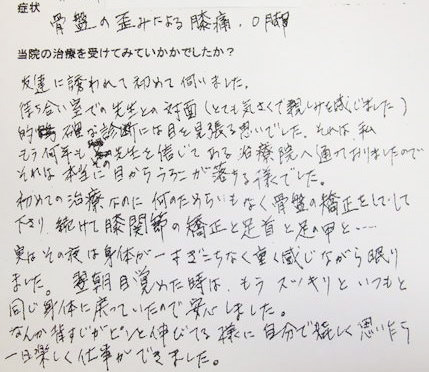 症状
骨盤の歪みによる膝痛、O脚
当院の治療を受けてみていかかでしたか？
友達に誘われて初めて伺いました。
待ち合い室での先生との対面(とても気さくで親しみを感じました)
的確な診断には目を見張る思いでした。それは私
もう何年も先生を信じてある治療院へ通っておりましたので
それは本当に目からうろこが落ちる様でした。
初めての治療なのに何のためらいもなく骨盤の矯正をして
下さり 続けて膝関節の矯正と足首と足の甲と……
実はその夜は身体が一すぎこちなく重く感じながら眠り
ました。 翌朝目覚めた時は、もう スッキリと いつもと
同じ身体に戻っていたので安心しました。
なんか背すじがピンと伸びてる様に自分で嬉しく思いたち
一日楽しく仕事ができました。